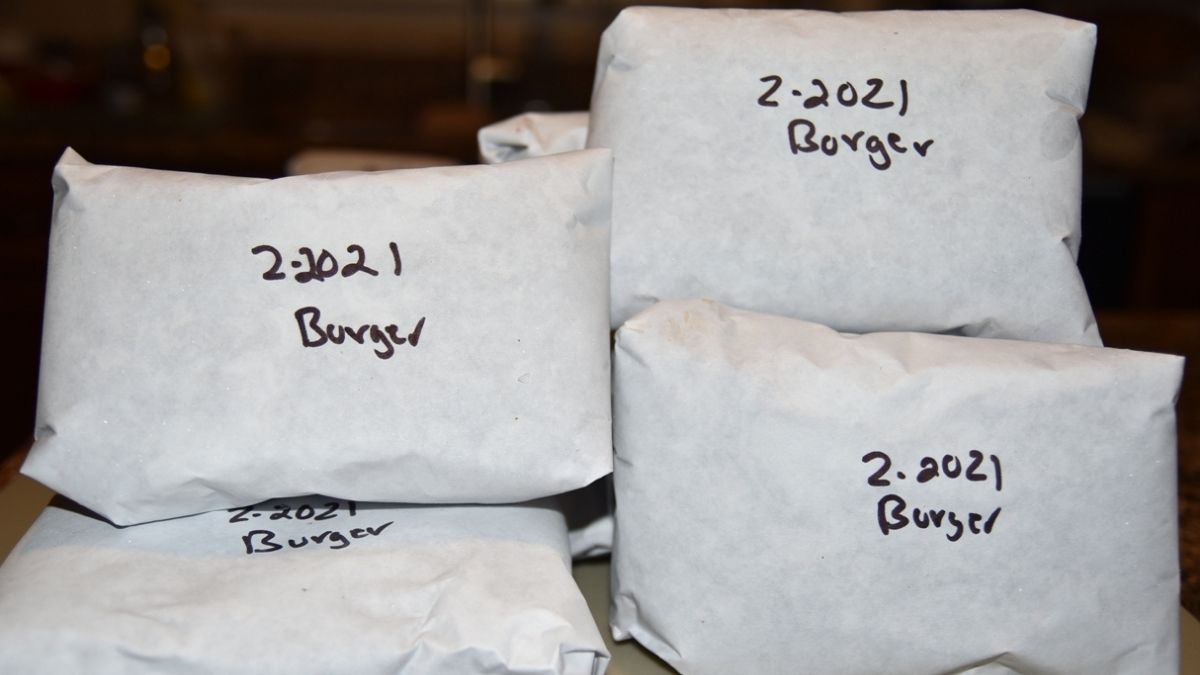 2-2021
Burger
2-2021
Burger
2-2021
Burger
2.2021
Burger